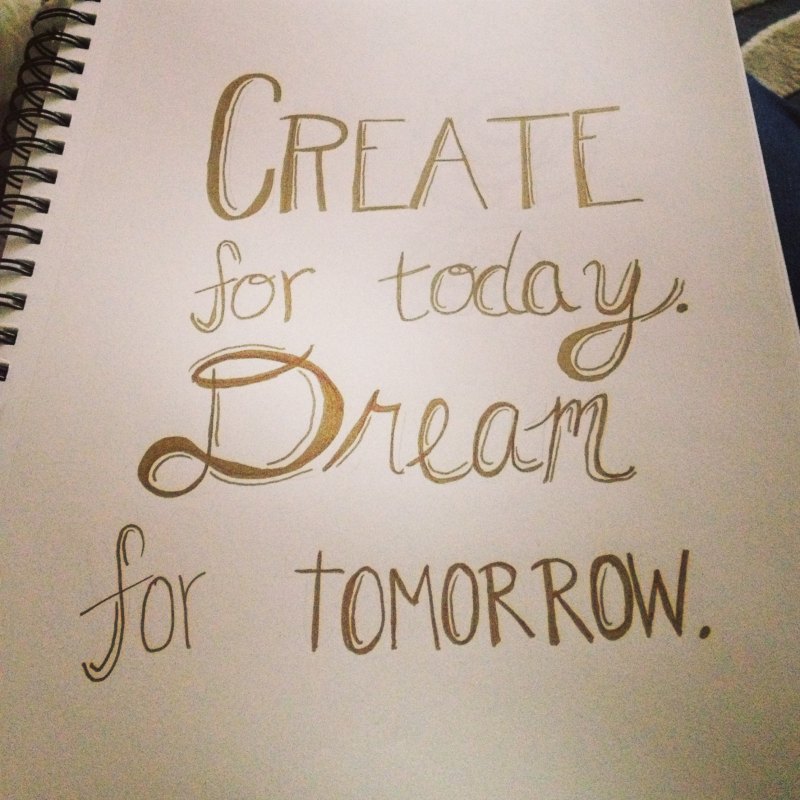 CREATE
for today.
Dream
for TOMORROW.